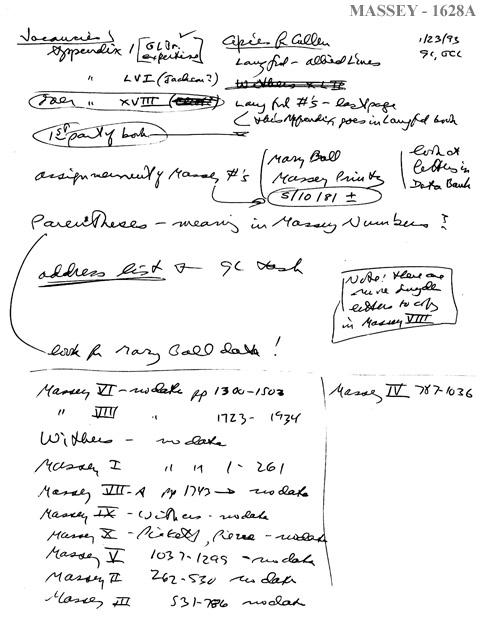 MASSEY - 1628A
Vacancies!
Appendix 1 [GLDn. ✓ expertise]
" LVI (Jackem?)
" XVIII
1st party book
Copies R Cullen
Langford - allied Lines
Withers XLII
Langford #'s - last page
this Appendix goes in Langford book
1/23/93
GC, GCC
assignment of Massey #'s
Mary Ball
Massey Printy
5/10/81 ±
look at
letters in
Data Bank
Parentheses - meaning in Massey Numbers?
address list GC
Note! there are
more
letters to copy
in Massey VIII
look for Mary Ball data!
Massey VI - no date pp 1300-1503
" VIII " 1723 - 1934
Withers - no date
Massey I " " 1 - 261
Massey VII-A pp 1743 → no date
Massey IX - Withers - no date
Massey X - Pickett, Pierce - no date
Massey V 1037-1299 - no date
Massey II 262-530 no date
Massey III 531-786 no date
Massey IV 787-1036